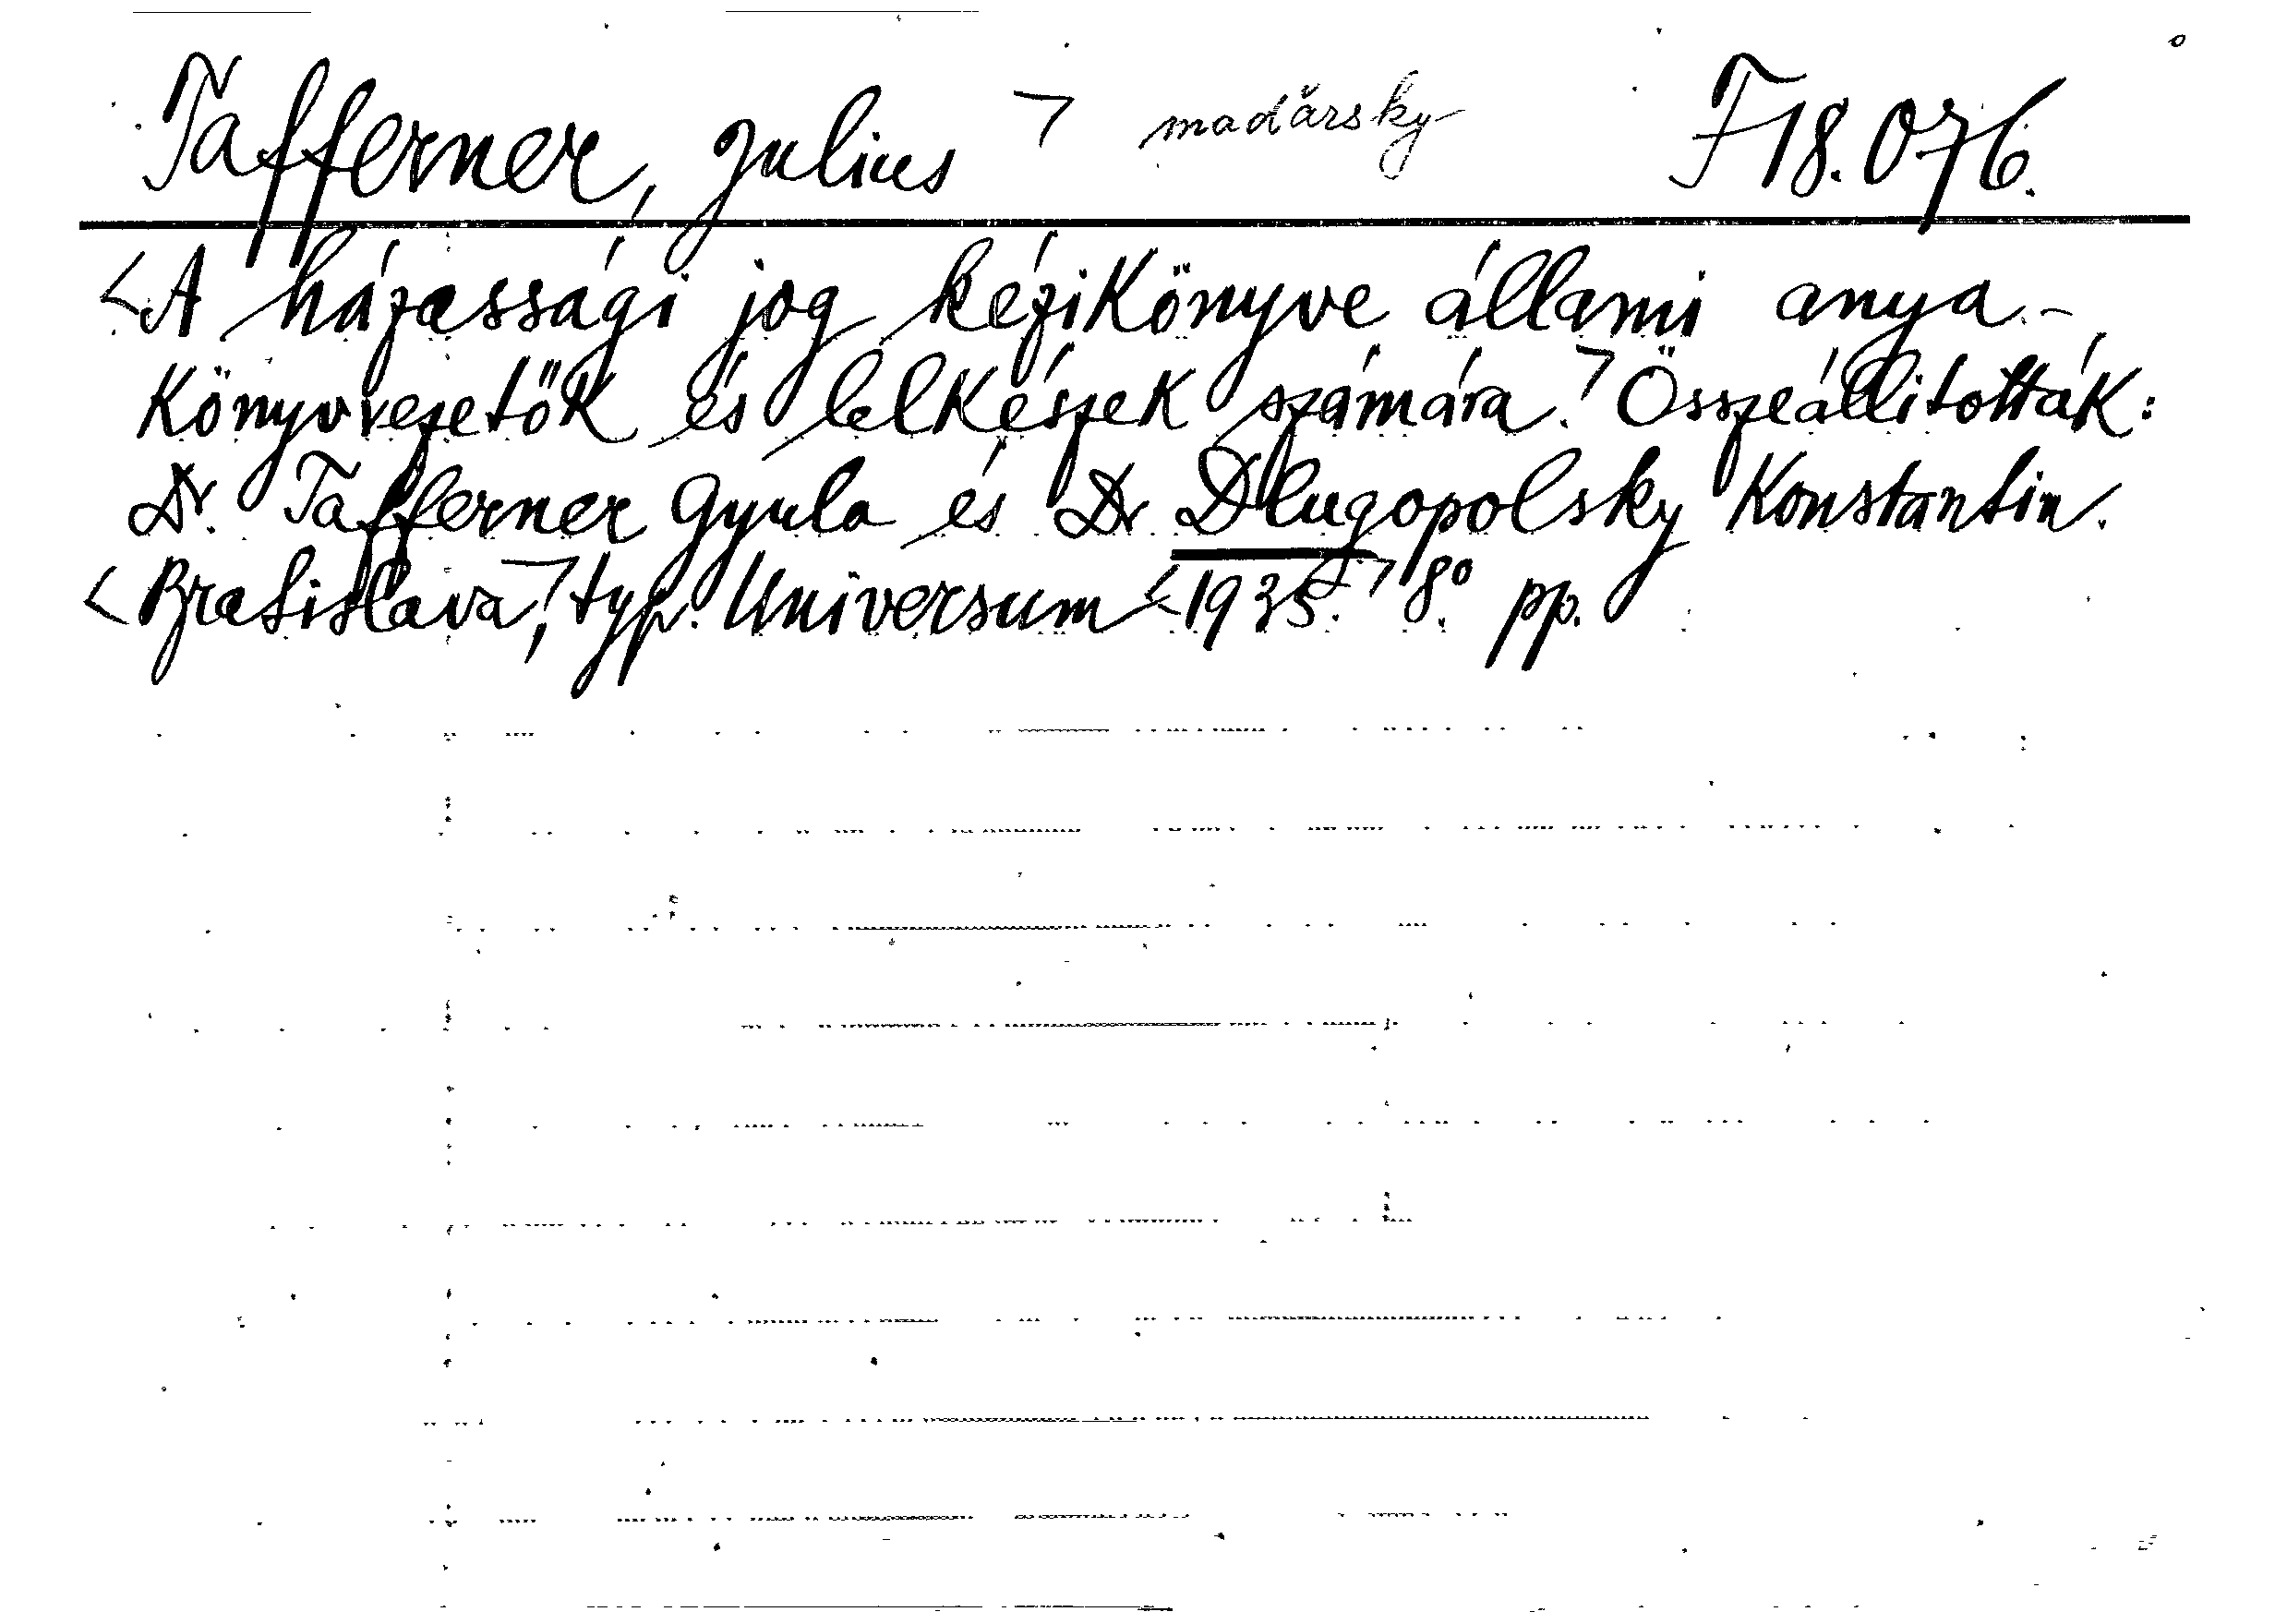 Tafferner, Julius ㄱ maďarsky F 18.076.
<A házassági jog kézikönyve állami anya-
könyvvezetők és lelkészek számára.ㄱ Összeállitották:
Dr. Tafferner Gyula és Dr Dlugopolsky Konstantin.
<Bratislava,ㄱ typ. Universum <1935.ㄱ 8° pp.